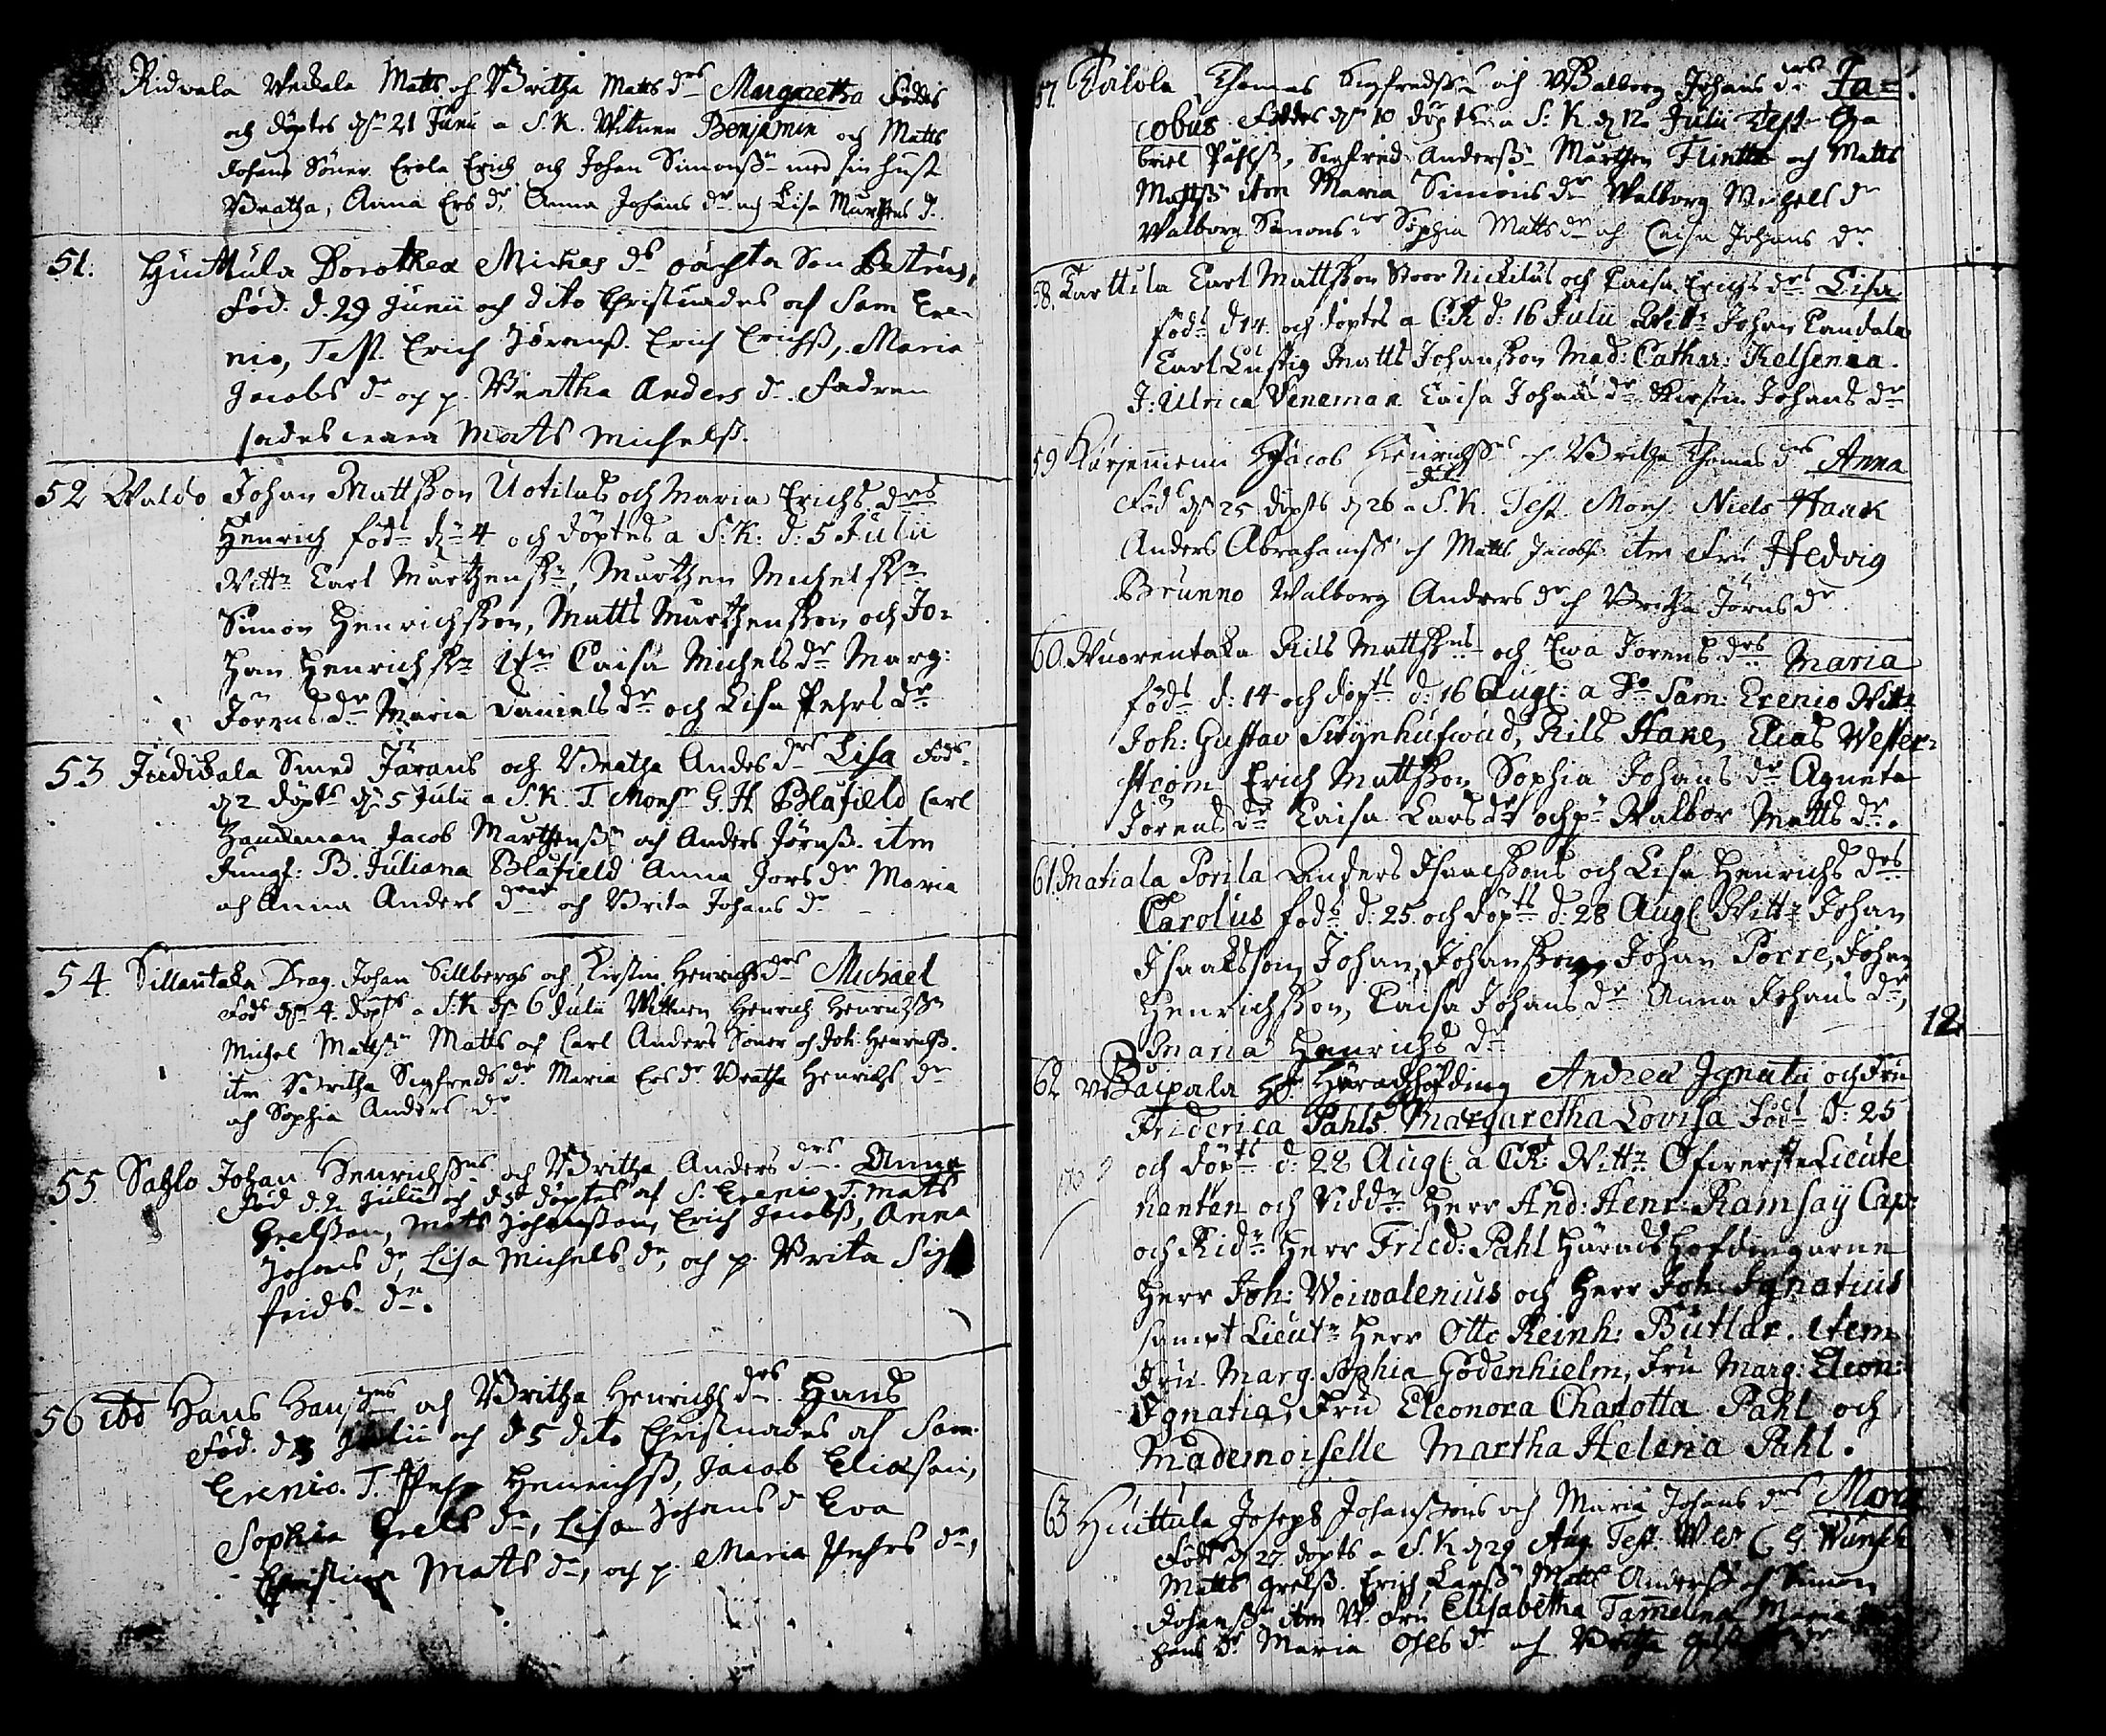 Ridvala Weckala Matts och Britha Matts dr Margaretha Föddes
och döptes dn 21 Junii a S.K. Wittnen Benjamin och Matts
Johans Söner Erola Erich och Johan Simonss med sin hust
Beatha, Anna Ers dr, Anna Johans dr och Lisa Murthens dr
51. Huittula Dorothea Michels dr oächta Son Petrus,
Föd. d. 29 Junii och dito Christnades af Sam Ere-
nio, Test. Erich Jörenss. Erich Erichss, Maria
Jacobs dr och p. Beatha Anders dr. Fadren
sades wara Mats Michelss.
52 Waldo Johan Mattsson Uotilas och Maria Erichs drs
Henrich föd dn 4 och döptes a S.K: d: 5 Julii
Witt. Carl Murthenss, Murthen Michelss
Simon Henrichsson, Matts Murthensson och Jo-
han Henrichss Item Caisa Michels dr Marg:
Jörens dr Maria Daniels dr och Lisa Pehrs dr
53 Judikala Smed Järans och Beatha Anders drs Lisa Föd
d 2 döpts dn 5 Julii a S.K. T. Mons G.H. Blåfield Carl
Handman Jacob Murthenss och Anders Jörnss. itm
Jungf: B. Juliana Blåfield Anna Jors dr Maria
och Anna Anders drar och Brita Johans dr
54. Sillantaka Drag. Johan Sillbergs och Kirstin Henrichs drs Michael
Föds dn 4. döpts a S.K dn 6 Julii Wittnen Henrich Henrichss
Michel Matss Matts och Carl Anders Söner och Joh: Henrichss.
itm Britha Sigfreds dr Maria Ers dr Beatha Henrichs dr
och Sophia Anders dr
55 Sahlo Johan Henrichss och Britha Anders drs. Anna
Föd d. 2 Julii och d 5t döptes af S. Erenio T. Mats
Grelsson, Mats Johansson, Erich Jacobss, Anna
Johans dr, Lisa Michels dr, och p. Brita Sig
frids dr.
56 ibd Hans Hanss och Britha Henrichs drs Hans
Föd. d 3 Julii och d 5 dito Christnades af Sam.
Erenio. T. Pehr Henrichss, Jacob Elieson,
Sophia Grels dr, Lisa Johans dr Eva
Christina Matts dr, och p. Maria Pehrs dr,
57. Thomas Sigfredss och Walborg Johans drs Ja=
cobus Föddes dn 10 döptes a S.K. d 12 Julii Test Ga
briel Påhlss, Sigfred Anderss Murthen Flintt och Matts
Matss itm Maria Simons dr Walborg Michels dr
Walborg Simons dr Sophia Matts dr och Caisa Johans dr
58. Karttila Carl Mattsson Stoor Nickilas och Caisa Erichs drs Lisa
föds d 14 och döptes a C.K d: 16 Julii Witt. Johan Candala
Carl Lustig Matts Johansson Mad: Cathar: Kelsenia
J: Ulrica Veneman Caisa Johans dr Kirstin Johans dr
59 Jacob Henrichss och Britha Thomas drs Anna
Föd dn 25 döpts d 26 Julii a S.K. Test. Mons. Niels Hauck
Anders Abrahamss och Matts Jacobss itm Fru Hedvig
Brunno Walborg Anders dr och Britha Jörns dr
60. Wuorentaka Nils Mattss och Ewa Jorens drs Maria
föds d: 14 och döpts d: 16 Aug: a Do Sam: Erenio Witt.
Joh: Gustav Swijnhufwud, Nils Hane, Elias Wester-
ström Erich Mattsson Sophia Johans dr Agneta
Jörens dr Caisa Lars dr och p Walbor Matts dr.
61. Matiala Porila Anders Isaacssons och Lisa Henrichs drs
Carolus föds d: 25 och döpts d: 28 Aug. Witt. Johan
Isaaksson Johan Johansson Johan Porre, Johan
Henrichsson, Caisa Johans dr Anna Johans dr,
Maria Henrichs dr
12.
62 Herr Häradshöfding Andrea Ignatii och Fru
Friderica Pahls Margaretha Lovisa Föd d: 25
och döpts d: 28 Aug: a CK: Witt. Öfwerste Lieute
nanten och Riddr Herr And: Henr: Ramsaÿ Cap:
och Ridr Herr Fried: Pahl Häradshöfdingarne
Herr Joh: Woiwalenius och Herr Joh: Ignatius
sampt Lieutn Herr Otto Reinh: Butlar. item
Fru Marg. Sophia Gödenhielm, Fru Marg: Eleon:
Ignatia, Fru Eleonora Charlotta Pahl och
Mademoiselle Martha Helena Pahl.
63 Huittula Joseph Johanssons och Maria Johans drs Maria
Födt d 27 döpts a S.K d 29 Aug. Test.
Matts Grelss. Erich Larss Matts Anderss och Simon
Johanss itm Fru Elisabetha Tamelina Maria
hans dr Maria dr och Britha